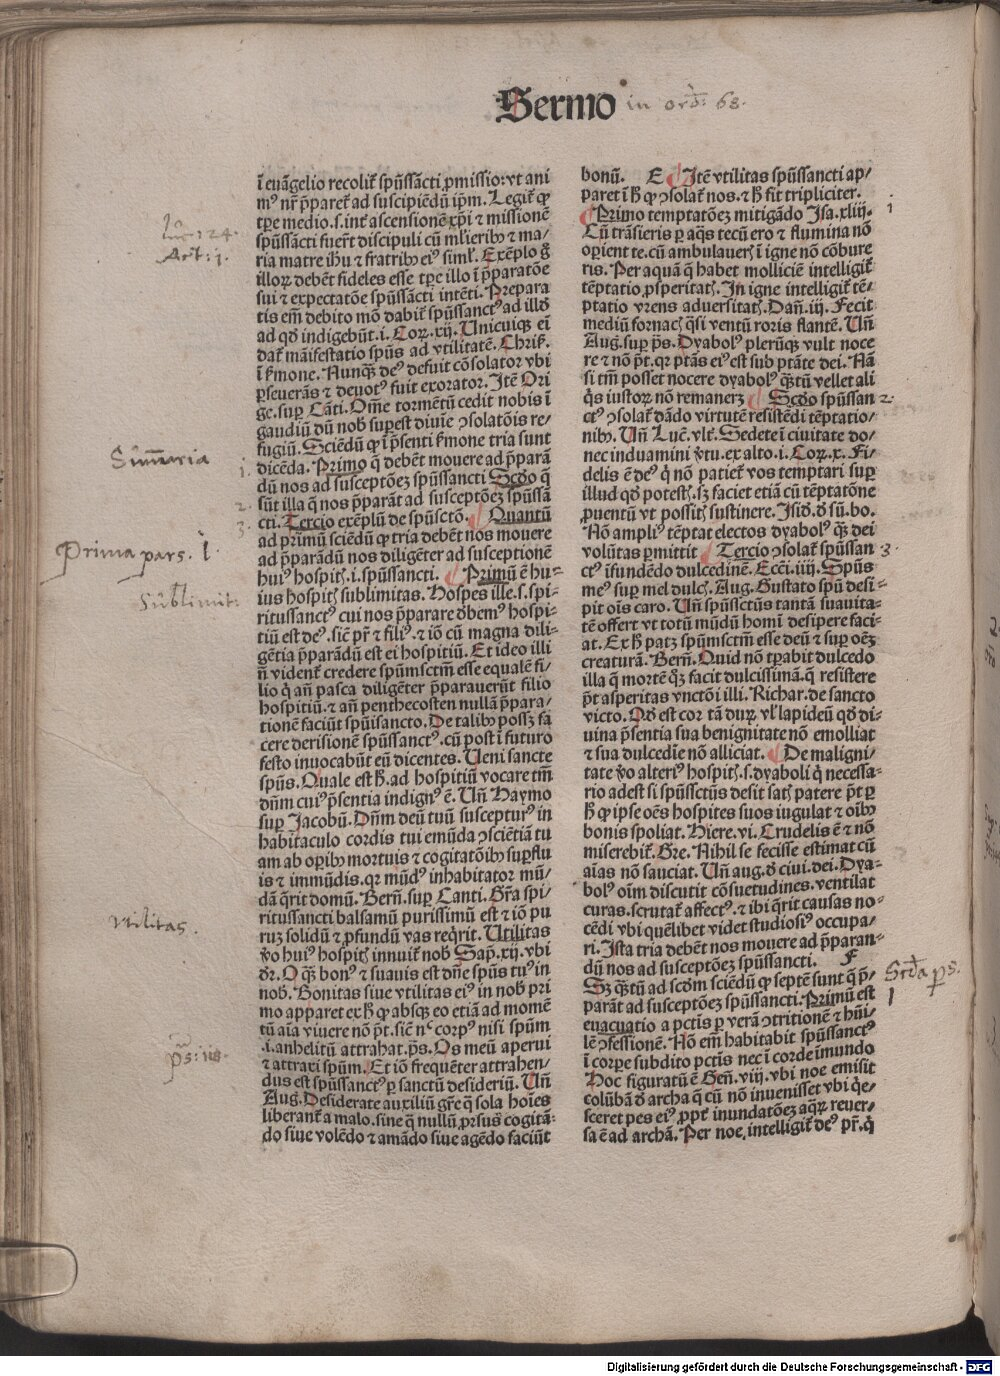 Sermo in ord: 68.
ī euāgelio recolit̄ spūssācti ꝓmissio: vt ani
mꝰ nr̄ p̄paret̄ ad suscipiēdū ip̄m. Legit̄ ꝙ
tꝑe medio .s. int̄ ascensionē xp̄i ⁊ missionē
spūssācti fuer̄t discipuli cū ml̓ieribꝫ ⁊ ma/
ria matre ih̓u ⁊ fratribꝫ ei simꝉ. Exēplo ḡ
illoꝝ debēt fideles esse tꝑe illo ī p̄paratōe
sui ⁊ expectatōe spūssācti intēti. Prepara
tis em̄ debito mō dabit̄ spūssanctꝰ ad illd̓
ad qd̓ indigebūt .i. Coꝝ. xij. Unicuiqꝫ ei̅
dat̄ māifestatio spūs ad vtilitatē. Chriß.
ī s̓mone. Nunqꝫ deꝰ defuit cōsolator vbi
ꝑseuerās ⁊ deuotꝰ fuit exorator. Itē Ori
ge. suꝑ Cāti. Oīne tormētū cedit nobis ī
gaudiū dū nob̓ suꝑest diuīe ɔsolatōis re/
fugiū. Sciēdū ꝙ ī p̄senti s̓mone tria sunt
dicēda. Primo q̄ debēt mouere ad p̄parā
dū nos ad susceptōeꝫ spūssancti Scd̓o q̄
sūt illa q̄ nos p̄parāt ad susceptōeꝫ spūssā
cti. Tercio exēplū de spūsctō. ¶ Quantū
ad primū sciēdū ꝙ tria debēt nos mouere
ad p̄parādū nos diligēter ad susceptionē
huiꝰ hospit̄ .i. spūssancti. ¶ Primū ē hu=
ius hospit̄ sublimitas. Hospes ille .s. spi-
ritussanctꝰ cui nos p̄parare d̓bemꝰ hospi-
tiū est deꝰ. siē pr̄ ⁊ filiꝰ. ⁊ iō cū magna dili-
gētia p̄parādū est ei hospitiū. Et ideo illi
n̄ vident̄ credere spūmsctm̄ esse equalē fi/
lio q̓ an̄ pasca diligēter p̄parauerūt filio
hospitiū. ⁊ an̄ penthecosten nullā p̄para/
tionē faciūt spūisancto. De talibꝫ possꝫ fa
cere derisionē spūssanctꝰ. cū post ī futuro
festo inuocabūt eū dicentes. Ueni sancte
spūs. Quale est h̓. ad hospitiū vocare tm̄
dn̄m cuiꝰ p̄sentia indignꝰ ē. Un̄ Haymo
suꝑ Jacobū. Dn̄m deū tuū susceptur̓ in
habitaculo cordis tui emūda ɔsciētiā tu
am ab oꝑibꝫ mortuis ⁊ cogitatōibꝫ suꝑflu
is ⁊ immūdis. qr mūdꝰ inhabitator mū/
dā q̄rit domū. Bern̄. suꝑ Canti. Gr̄a spi/
ritussancti balsamū purissimū est ⁊ iō pu
ruꝫ solidū ⁊ ꝓfundū vas req̓rit. Utilitas
v̓o huiꝰ hospit̄ innuit̄ nob̓ Sap̄. xij. vbi
dr̄. O q̄ꝫ bonꝰ ⁊ suauis est dn̄e spūs tuꝰ in
nob̓. Bonitas siue vtilitas eiꝰ in nob̓ pri
mo apparet ex h̓ ꝙ absqꝫ eo etiā ad momē
tū aīa viuere nō p̄t. siē nᶜ corpꝰ nisi spūm
.i. anhelitū attrahat. p̄s. Os meū aperui
⁊ attraxi spūm. Et iō frequēter attrahen/
dus est spūssanctꝰ ꝑ sanctū desideriū. Un̄
Aug. Desiderate auxiliū gr̄e q̄ sola hoīes
liberant̄ a malo. sine q̄ nullū ꝓrsus cogitā=
do siue volēdo ⁊ amādo siue agēdo faciūt
bonū. E ¶ Itē vtilitas spūssancti ap/
paret ī h̓ ꝙ ɔsolat̄ nos. ⁊ h̓ fit tripliciter.
¶ Primo temptatōeꝫ mitigādo Isa. xliij.
Cū trāsieris ꝑ aq̄s tecū ero ⁊ flumina nō
oꝑient te. cū ambulauer̄ ī igne nō cōbure
ris. Per aquā q̄ habet molliciē intelligit̄
tēptatio ꝓsperitat̄. In igne intelligit̄ tē/
ptatio vrens aduersitat̄. Dan̄. iij. Fecit
mediū fornac̄ q̄si ventū roris flantē. Un̄
Aug. suꝑ p̄s. Dyabolꝰ plerūqꝫ vult noce
re ⁊ nō p̄t. qr ptās eiꝰ est sub ptāte dei. Nā
si tm̄ posset nocere dyabolꝰ q̄ꝫtū vellet ali
q̄s iustoꝝ nō remanerꝫ ¶ Scd̓o spūssan
ctꝰ ɔsolat̄ dādo virtutē resistēdi tēptatio/
nibꝫ. Un̄ Luc̄. vlt̄. Sedete ī ciuitate do/
nec induamini v̓tu. ex alto. i. Coꝝ. x. Fi/
delis ē deꝰ q̓ nō patiet̄ vos temptari suꝑ
illud qd̓ potest̄. sꝫ faciet etiā cū tēptatōne
ꝓuentū vt possit̄ sustinere. Isid̓. d̓ sū. bo.
Nō ampliꝰ tēptat electos dyabolꝰ q̄ꝫ dei
volūtas ꝑmittit ¶ Tercio ɔsolat̄ spūssan
ctꝰ īfundēdo dulcedinē. Ecc̄i. iiij. Spūs
meꝰ suꝑ mel dulc̄. Aug. Gustato spū desi-
pit ois caro. Un̄ spūssctūs tantā suauita-
tē offert vt totū mūdū homī desipere faci-
at. Ex h̓ patꝫ spūmsctm̄ esse deū ⁊ suꝑ oēꝫ
creaturā. Bern̄. Quid nō tꝑabit dulcedo
illa q̄ mortē q̄ꝫ facit dulcissimā. q̄ resistere
p̄t asperitas vnctōi illi. Richar. de sancto
victo. Qd̓ est cor tā duꝝ vl̓ lapideū qd̓ di-
uina p̄sentia sua benignitate nō emolliat
⁊ sua dulcedīe nō alliciat. ¶ De maligni/
tate v̓o alteriꝰ hospit̄ .s. dyaboli q̓ necessa-
rio adest si spūssctūs desit sat̄ patere p̄t ꝑ
h̓ ꝙ ipse oēs hospites suos iugulat ⁊ oībꝫ
bonis spoliat. Hiere. vi. Crudelis ē ⁊ nō
miserebit̄. Gre. Nihil se fecisse estimat cū
aīas nō sauciat. Un̄ aug. d̓ ciui. dei. Dya-
bolꝰ oīm discutit cōsuetudines. ventilat
curas. scrutat̄ affectꝰ. ⁊ ibi q̄rit causas no-
cēdi vbi quēlibet videt studiosiꝰ occupa/
ri. Ista tria debēt nos mouere ad p̄paran-
dū nos ad susceptōeꝫ spūssancti. F
Sꝫ q̄ꝫtū ad scd̓m sciēdū ꝙ septē sunt q̄ p̄/
parāt ad susceptōeꝫ spūssancti. Primū est
euacuatio a pctis ꝑ verā ɔtritionē ⁊ hūi/
lē ɔfessionē. Nō em̄ habitabit spūssanctꝰ
ī corꝑe subdito pctis nec ī corde īmundo
Hoc figuratū ē Gen̄. viij. vbi noe emisit
colūbā d̓ archa q̄ cū nō inuenisset vbi q̓e/
sceret pes eiꝰ ꝓpt̄ inundatōeꝫ aqꝝ reuer/
sa ē ad archā. Per noe. intelligit̄ deꝰ pr̄. q̓
Luc: 24.
Act: 1.
Sum̄aria
1.
2.
3.
Prima pars. 1.
Sublimit:
vtilitas.
ps: 118.
1
2.
3.
Scd̓a ps.
1
Digitalisierung gefördert durch die Deutsche Forschungsgemeinschaft - DFG